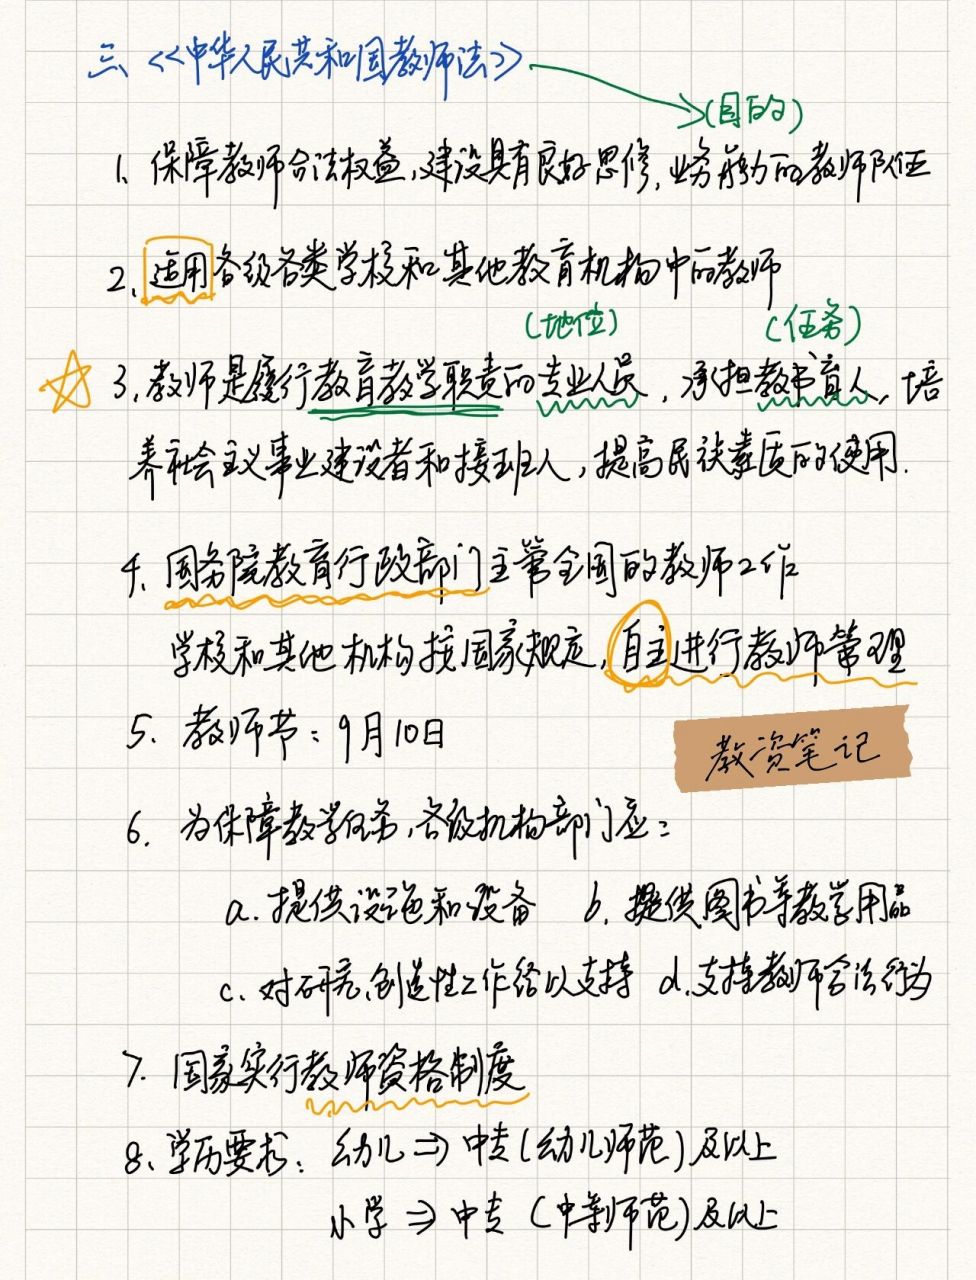 三、《中华人民共和国教师法》
(目的)
1、保障教师合法权益,建设具有良好思修,业务能力的教师队伍
2、适用各级各类学校和其他教育机构中的教师
(地位) (任务)
3、教师是履行教育教学职责的专业人员,承担教书育人,培
养社会主义事业建设者和接班人,提高民族素质的使用.
4、国务院教育行政部门主管全国的教师工作
学校和其他机构按国家规定,自主进行教师管理
5、教师节:9月10日
教资笔记
6、为保障教学任务,各级机构部门应:
a.提供设施和设备 b.提供图书等教学用品
c.对研究、创造性工作给以支持 d.支持教师合法行为
7.国家实行教师资格制度
8、学历要求:幼儿⇒中专(幼儿师范)及以上
小学⇒中专(中等师范)及以上